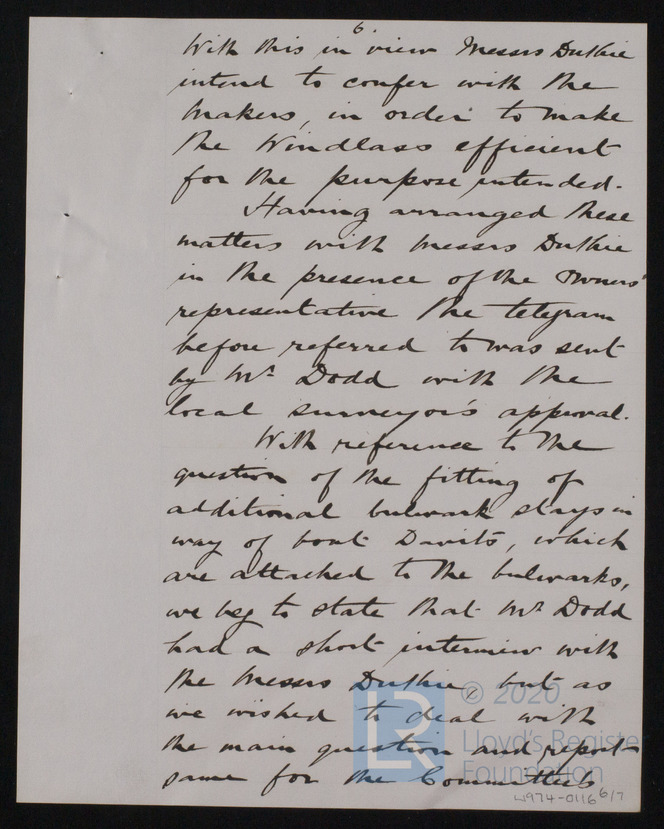 6.
With this in view Messrs Duthie
intend to confer with the
Makers, in order to make
the Windlass efficient
for the purpose intended.
Having arranged these
matters with Messrs Duthie
in the presence of the Owners'
representative the telegram
before referred to was sent
by Mr Dodd with the
local surveyor's approval.
With reference to the
question of the fitting of
additional bulwark stays in
way of boat Davits, which
are attached to the bulwarks,
we beg to state that Mr Dodd
had a short interview with
the Messrs Duthie, but as
we wished to deal with
the main question and report
same for the Committee's
© 2020
Lloyd's Register
Foundation
W974-0116 6/7